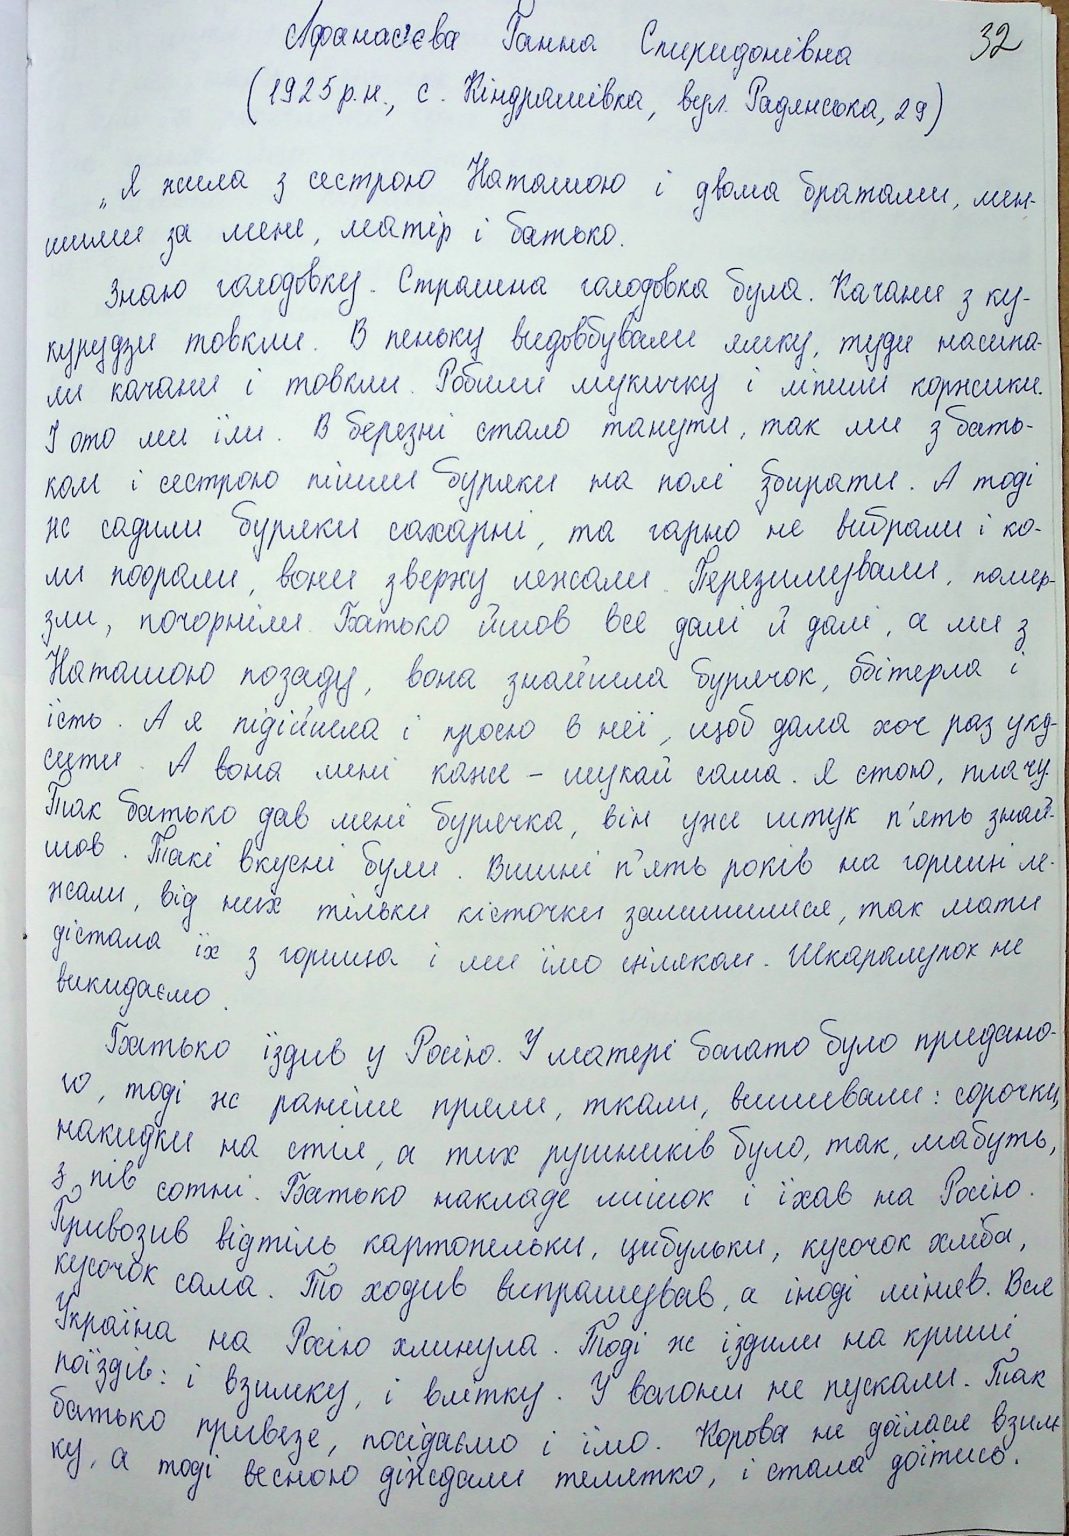 Афанасʼєва Ганна Спиридонівна 32
(1925 р.н., с. Кіндрашівка, вул. Радянська, 29)
„Я жила з сестрою Наташою і двома братами, мен-
шими за мене, матір і батько.
Знаю голодовку. Страшна голодовка була. Качани з ку-
курудзи товкли. В пеньку видовбували ямку, туди насипа-
ли качани і товкли. Робили мукичку і ліпили коржики.
І ото ми їли. В березні стало танути, так ми з бать-
ком і сестрою пішли буряки на полі збирати. А тоді
ж садили буряки сахарні, та гарно не вибрали і ко-
ли поорали, вони зверху лежали. Перезимували, помер-
зли, почорніли. Батько йшов все далі й далі, а ми з
Наташою позаду, вона знайшла бурячок, обітерла і
їсть. А я підійшла і прошу в неї, щоб дала хоч раз уку-
сити. А вона мені каже – шукай сама. Я стою, плачу.
Так батько дав мені бурячка, він уже штук п'ять знай-
шов. Такі вкусні були. Вишні п'ять років на горищі ле-
жали, від них тільки кісточки залишилися, так мати
дістала їх з горища і ми їмо цілякам. Шкаралупок не
викидаємо.
Батько їздив у Росію. У матері багато було придано-
го, тоді ж раніше пряли, ткали, вишивали: сорочки,
накидки на стіл, а тих рушників було, так, мабуть,
з пів сотні. Батько накладе мішок і їхав на Росію.
Привозив відтіль картопельки, цибульки, кусочок хліба,
кусочок сала. То ходив випрашував, а іноді міняв. Вся
Україна на Росію хлинула. Тоді ж їздили на криші
поїздів: і взимку, і влітку. У вагони не пускали. Так
батько привезе, посідаємо і їмо. Корова не доїлася взим-
ку, а тоді весною діждали телятко, і стала доїтись.